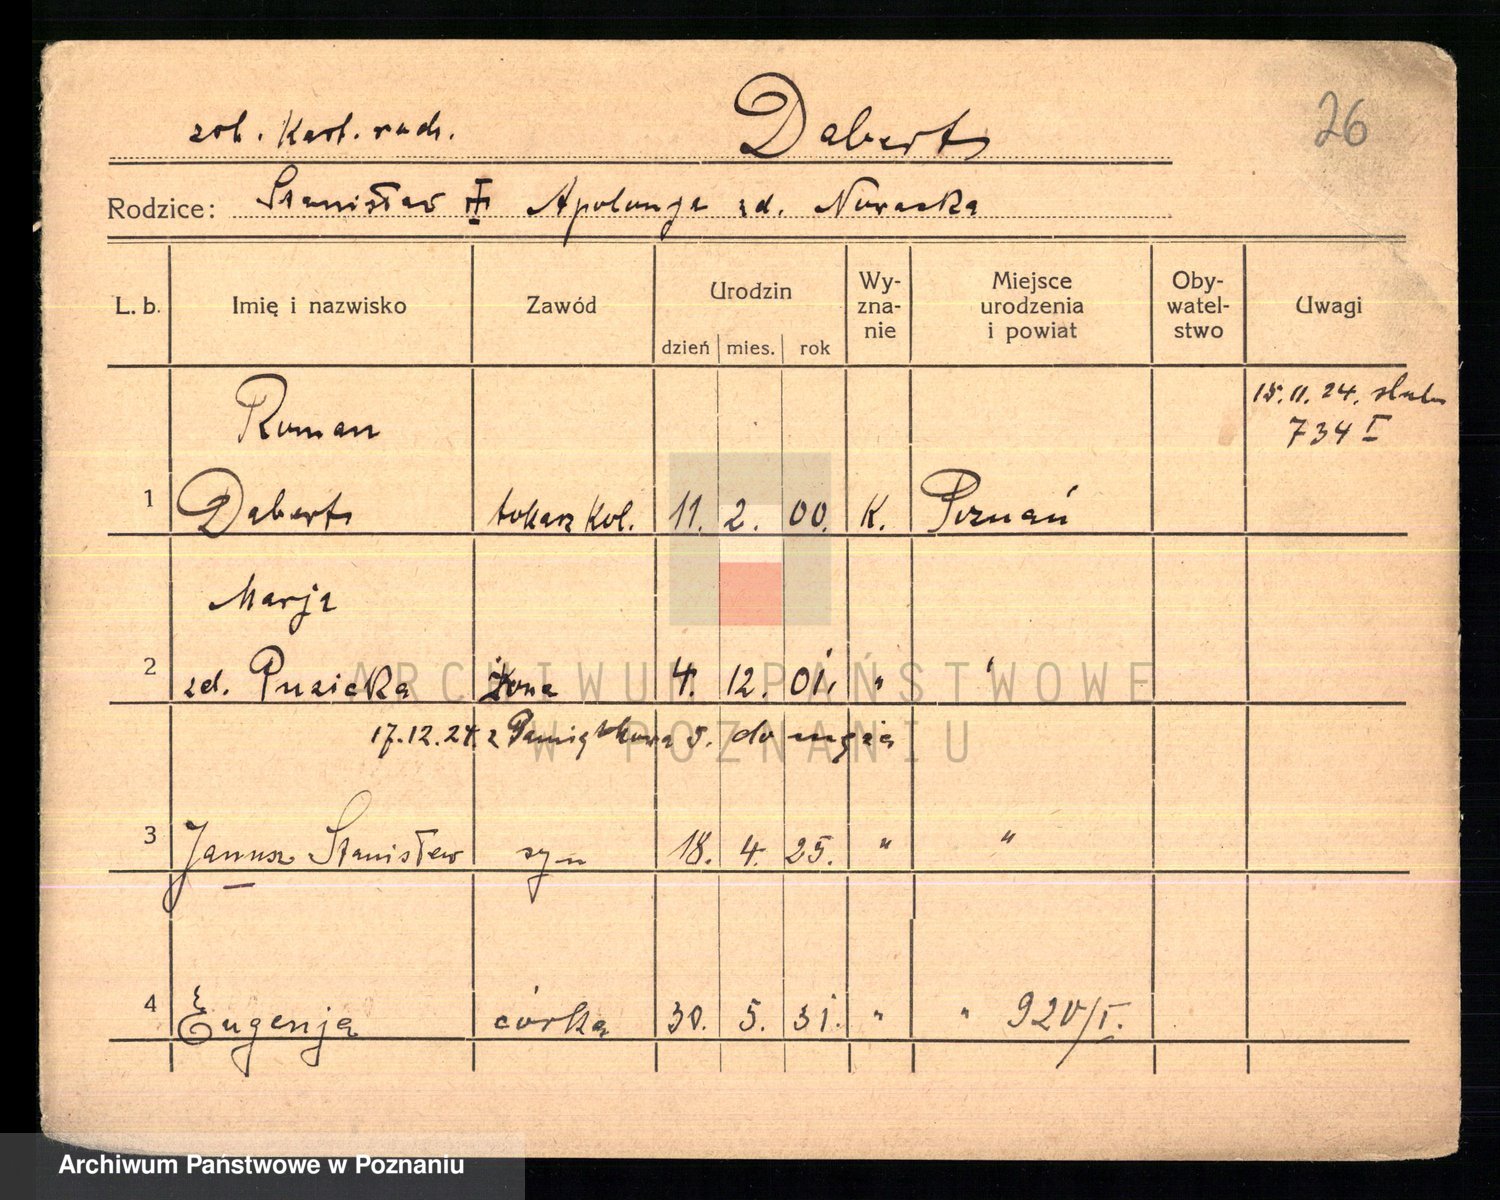 26
zob. Kart. rodz. Daberts
Rodzice: Stanisław Apolonja zd. Nowacka
L. b. Imię i nazwisko Zawód Urodzin dzień mies. rok Wy-zna-nie Miejsce urodzenia i powiat Oby-watel-stwo Uwagi
15. 11. 24. ślubu
Roman 734 I
1 Daberts tokarz kol. 11. 2. 00. K. Poznań
Marja
2 zd. Puzicka żona 4. 12. 01. " "
17.12.24. z Pamiątkowa 5. do męża
3 Janusz Stanisław syn 18. 4. 25. " "
4 Eugenja córka 30. 5. 31. " " 920/I.
ARCHIWUM PAŃSTWOWE
W POZNANIU
Archiwum Państwowe w Poznaniu